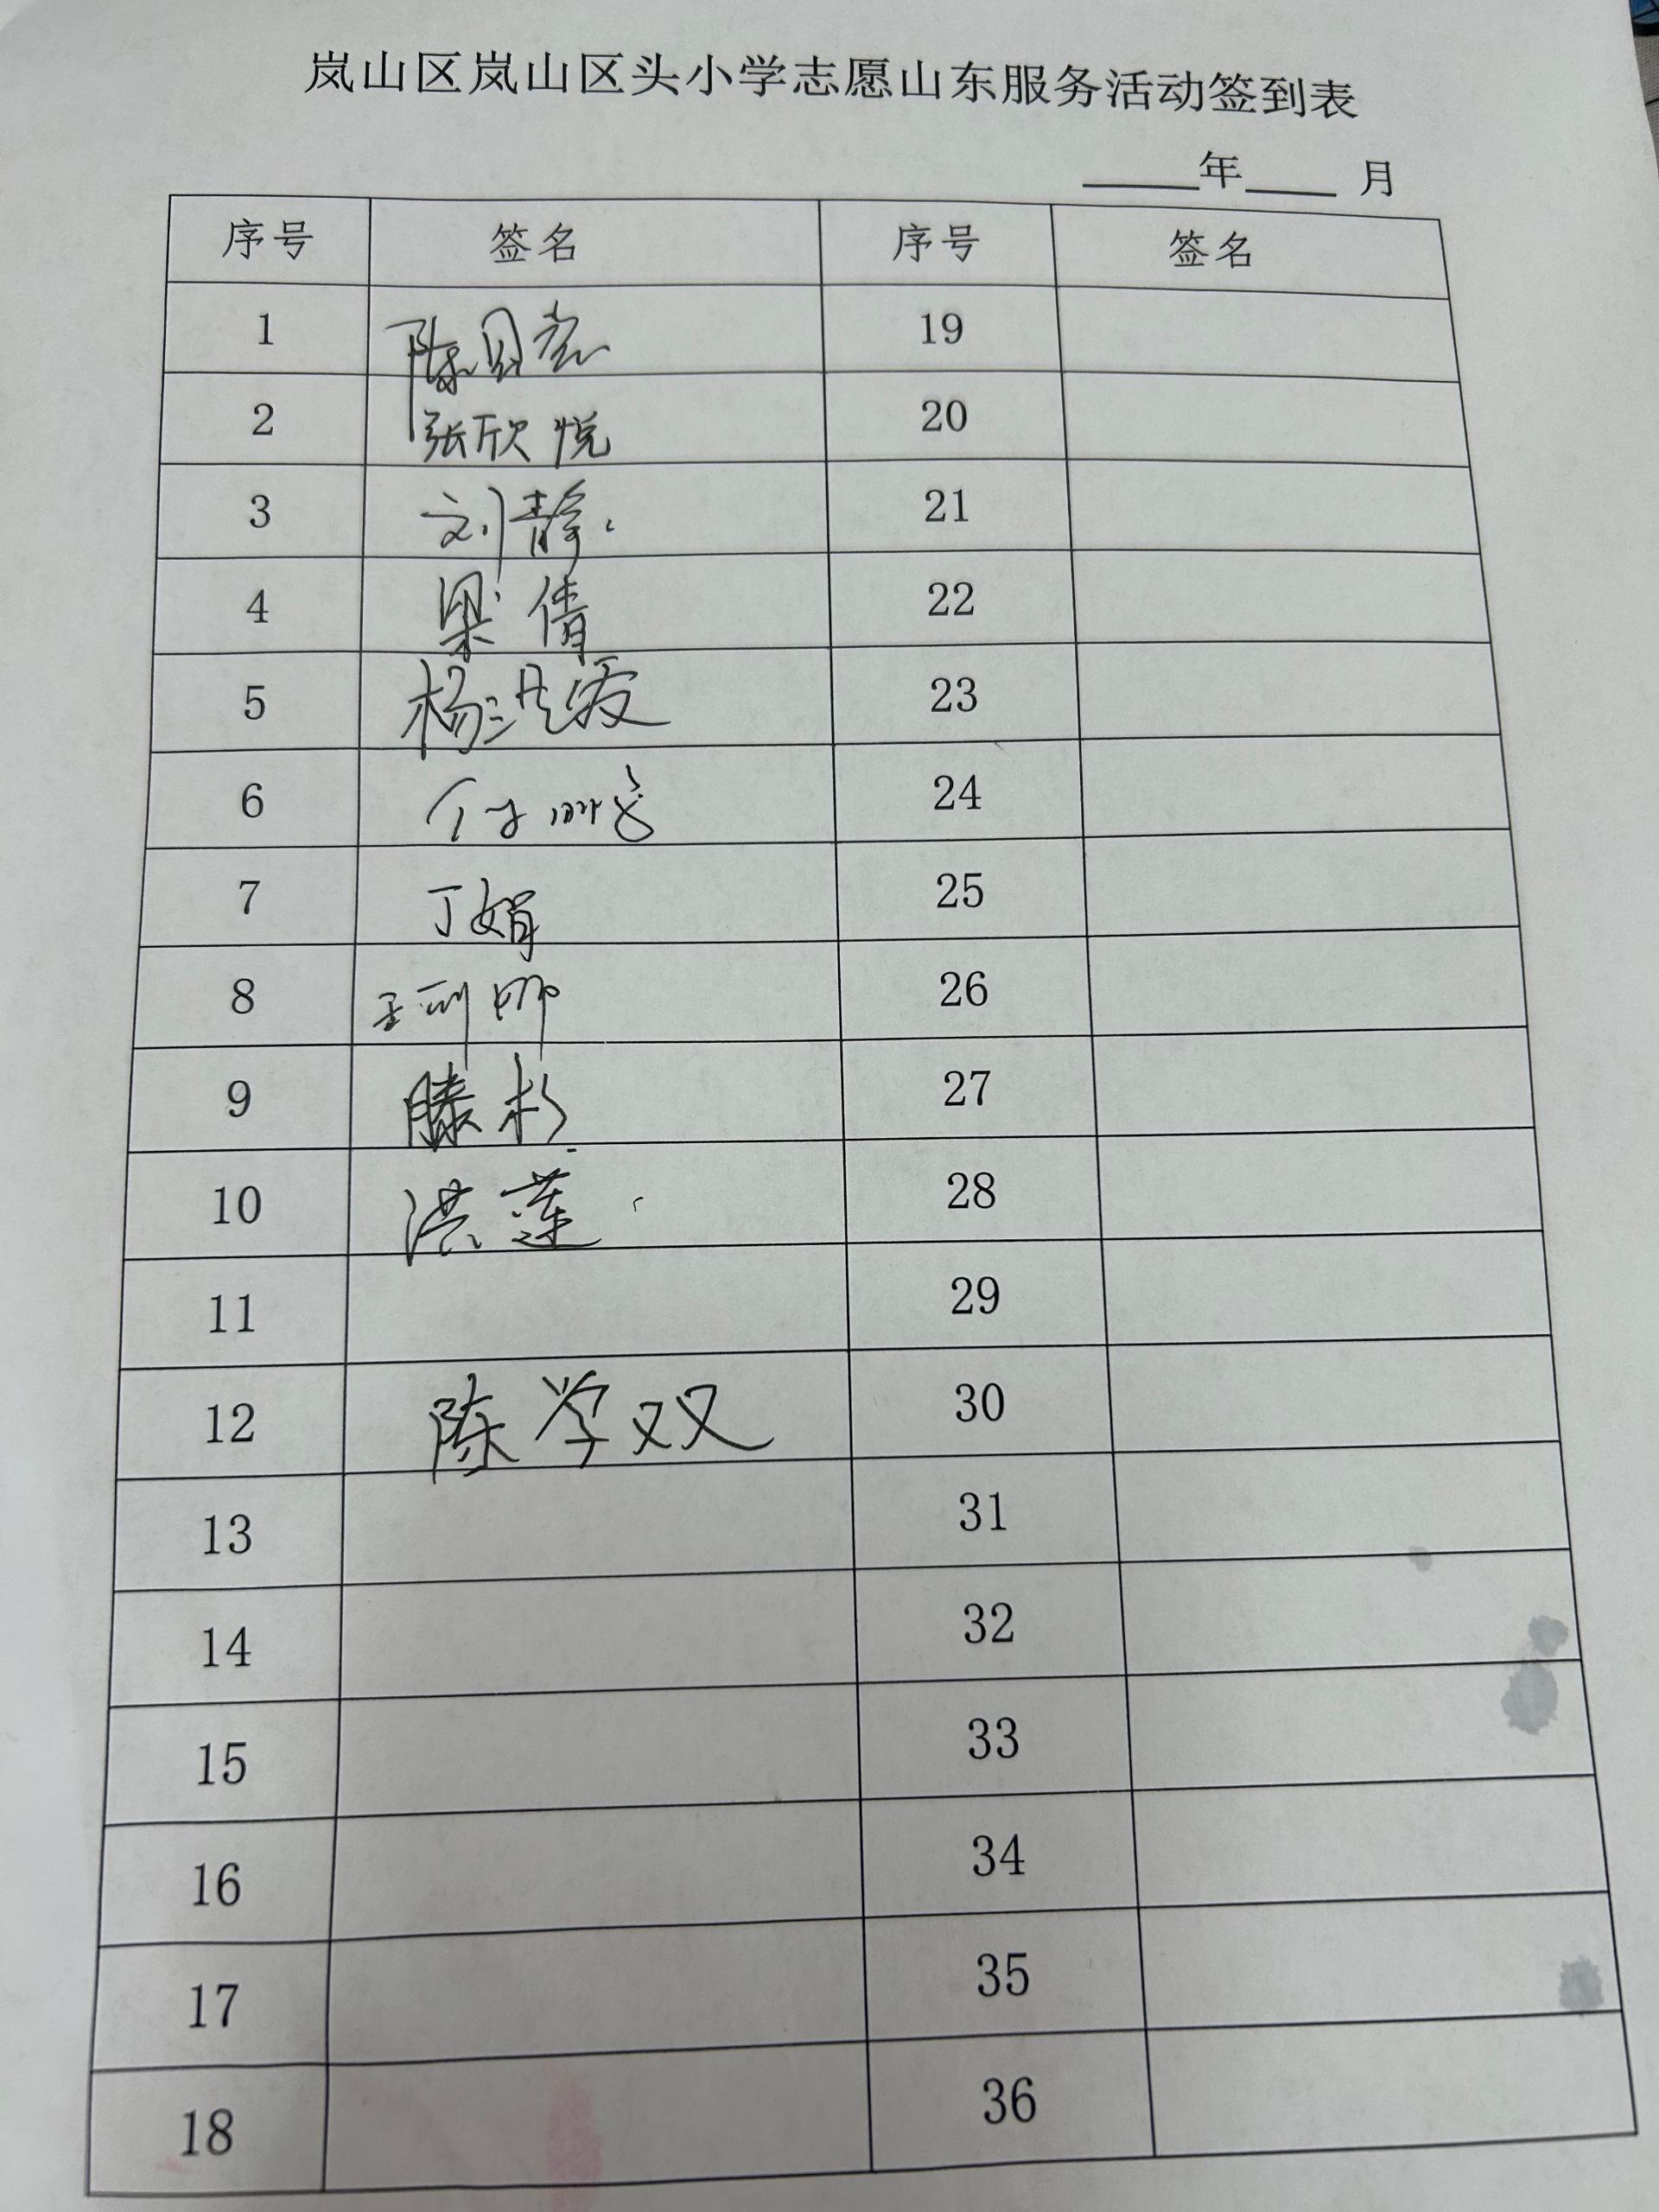 岚山区岚山区头小学志愿山东服务活动签到表
年 月
序号 签名 序号 签名
1 陈 19
2 张欣悦 20
3 刘静 21
4 梁倩 22
5 杨 23
6 付 24
7 丁娟 25
8 王 娜 26
9 滕杉 27
10 洪莲 28
11 29
12 陈学双 30
13 31
14 32
15 33
16 34
17 35
18 36